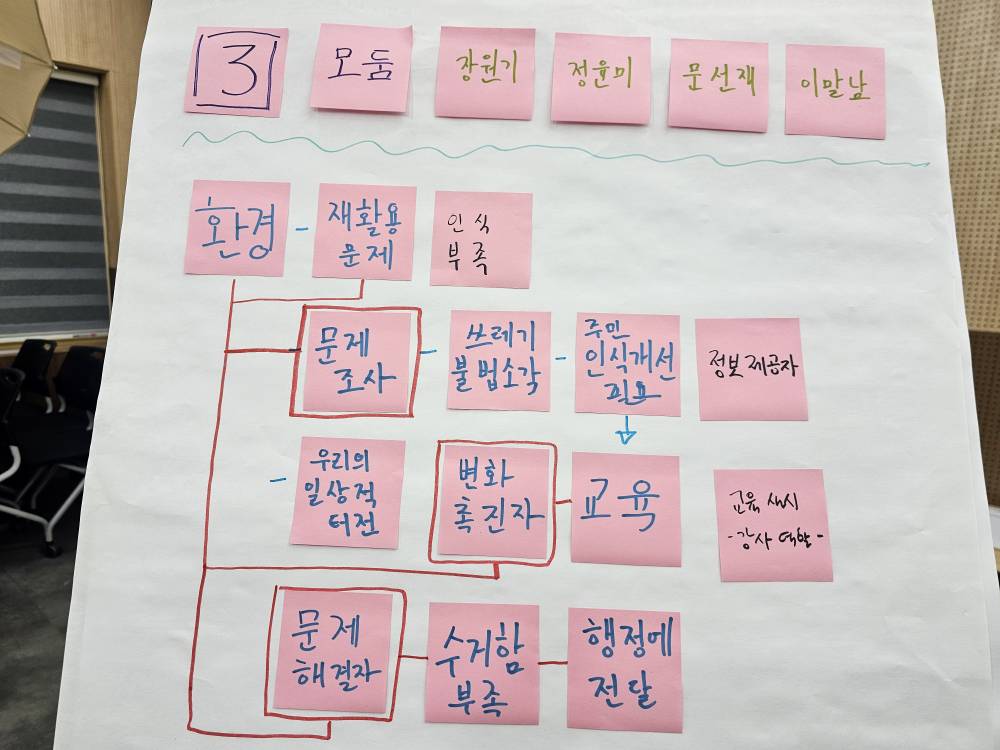 3
모둠
장원기
정윤미
문선재
이말남
환경
재활용
문제
인식
부족
문제
조사
쓰레기
불법소각
주민
인식개선
필요
정보제공자
우리의
일상적
터전
변화
촉진자
교육
교육 실시
-강사 역할-
문제
해결자
수거함
부족
행정에
전달